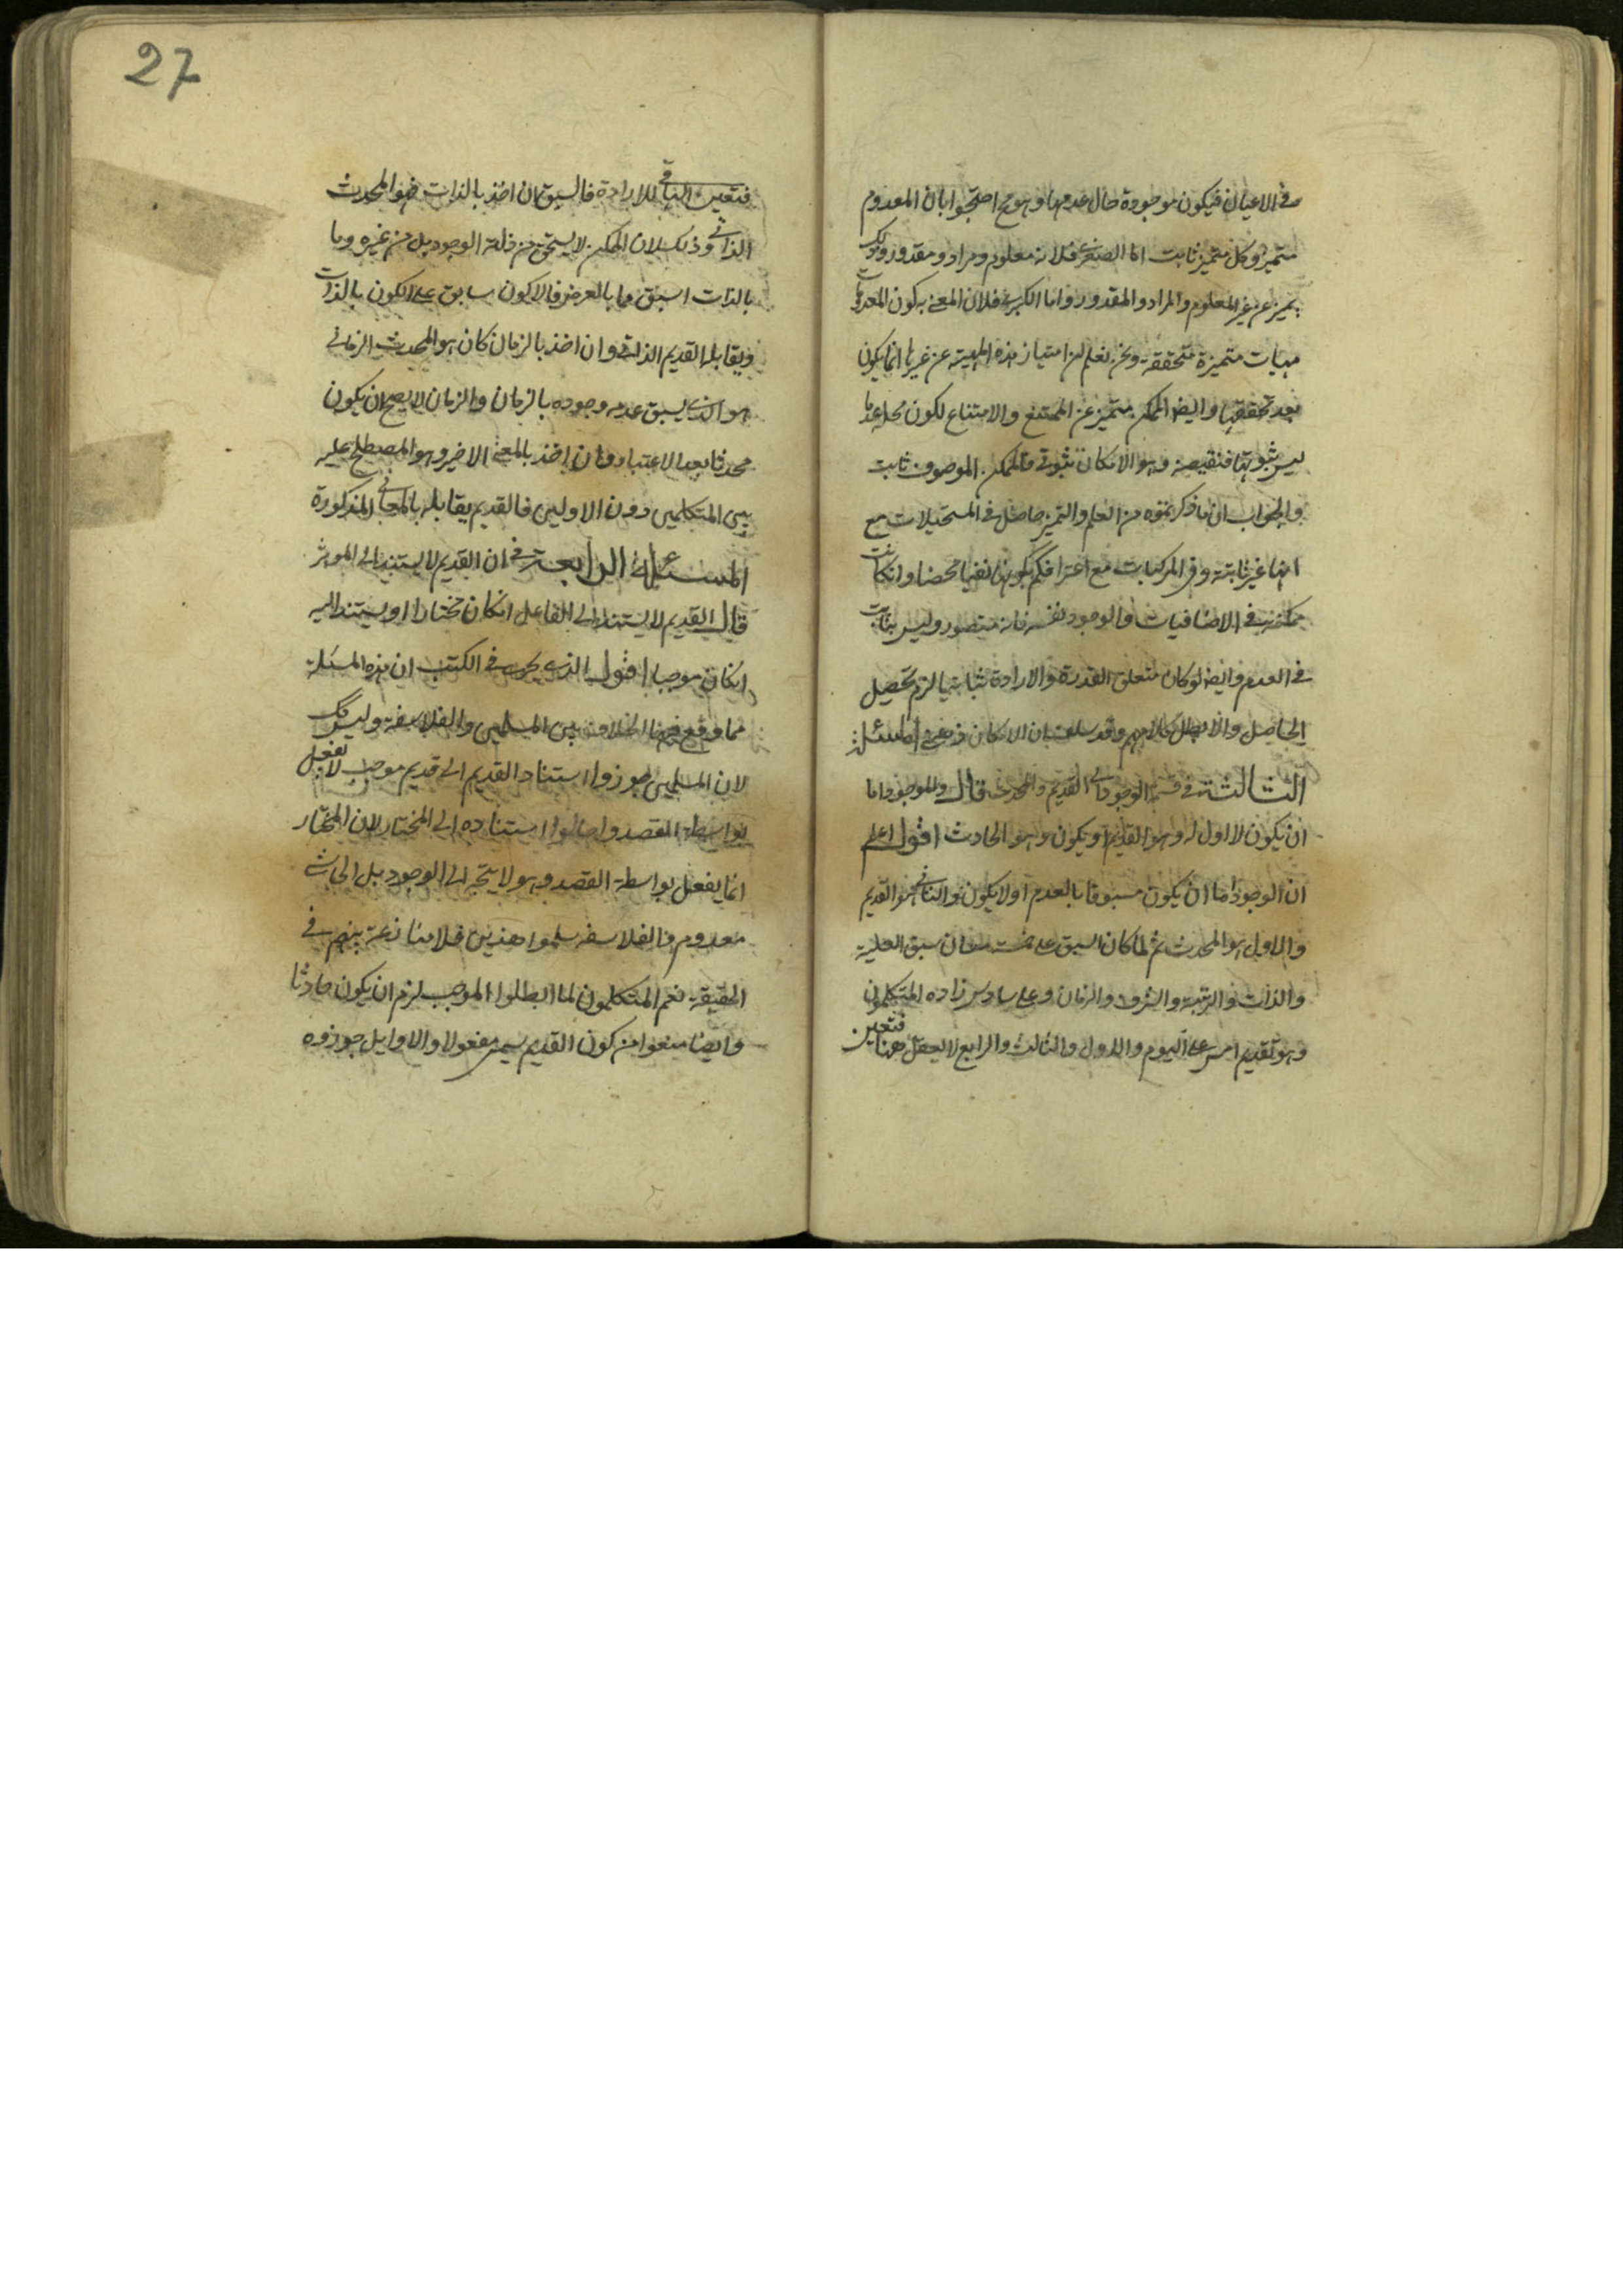 في الاعيان فيكون موجودة حال عدمها وهو مح احتجوا بان المعدوم
متميز وكل متميز ثابت اما الصغرى فلانه معلوم ومراد ومقدور وذلك
يميز عن غير المعلوم والمراد والمقدور واما الكبرى فلان المعنى به كون المعدومات
مهيات متميزة متحققة ونحن نعلم ان امتياز هذه المهية عن غيرها انما يكون
بعد تحققها وايضا الممكن متميز عن الممتنع والامتناع لكون محله عدما
ليس ثبوتيا فنقيضه وهو الامكان ثبوتي فالممكن الموصوف ثابت
والجواب ان ما ذكرتموه من العلم والتميز حاصل في المستحيلات مع
انها غير ثابتة وفي المركبات مع اعترافكم بكونها نفيا محضا وان كانت
ممكنة وفي الاضافيات والوجود نفسه فانه متصور وليس بثابت
في العدم وايضا لو كان متعلق القدرة والارادة ثابتا لزم تحصيل
الحاصل والا بطل كلامهم وقد سلف بان الامكان فرضي المسئلة
الثالثة في قسمة الوجود الى القديم والمحدث قال والموجود اما
ان يكون لا اول له وهو القديم او يكون وهو الحادث اقول اعلم
ان الوجود اما ان يكون مسبوقا بالعدم او لا يكون والثاني هو القديم
والاول هو المحدث ثم لما كان السبق على خمسة معان سبق العلية
والذات والرتبة والشرف والزمان وعلى سادس زاده المتكلمون
وهو تقديم امس على اليوم والاول والثالث والرابع لا يعقل هنا فتعين
27
فتعين الباقي للارادة فالسبق ان اخذ بالذات فهو المحدث
الذاتي وذلك لان الممكن لا يستحق من ذاته الوجود بل من غيره وما
بالذات اسبق مما بالعرض فالاكون سابق على الكون بالذات
ويقابله القديم الذاتي وان اخذ بالزمان كان هو المحدث الزماني
هو الذي يسبق عدمه وجوده بالزمان والزمان لا يصح ان يكون
محدثا بهذا الاعتبار وان اخذ بالمعنى الاخير وهو المصطلح عليه
بين المتكلمين دون الاولين فالقديم يقابله بالمعاني المذكورة
المسئلة الرابعة في ان القديم لا يستند الى الموثر
قال القديم لا يستند الى الفاعل ان كان مختارا او يستند اليه
ان كان موجبا اقول الذي يحرر في الكتب ان هذه المسئلة
مما وقع فيها الخلاف بين المسلمين والفلاسفة وليس كك
لان المسلمين جوزوا استناد القديم الى قديم موجب لا يفعل
بواسطة القصد واحالوا استناده الى المختار لان المختار
انما يفعل بواسطة القصد وهو لا يتجه الى الوجود بل الى شئ
معدوم والفلاسفة سلموا هذين فلا منازعة بينهم في
الحقيقة نعم المتكلمون لما ابطلوا الموجب لزم ان يكون حادثا
وايضا منعوا من كون القديم يسمى مفعولا والاوايل جوزوه